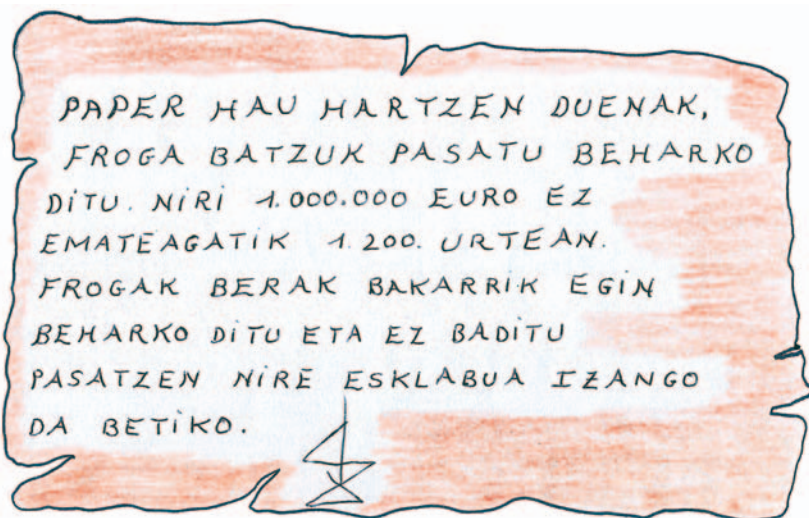 PAPER HAU HARTZEN DUENAK,
FROGA BATZUK PASATU BEHARKO
DITU. NIRI 1.000.000 EURO EZ
EMATEAGATIK 1.200. URTEAN.
FROGAK BERAK BAKARRIK EGIN
BEHARKO DITU ETA EZ BADITU
PASATZEN NIRE ESKLABUA IZANGO
DA BETIKO.